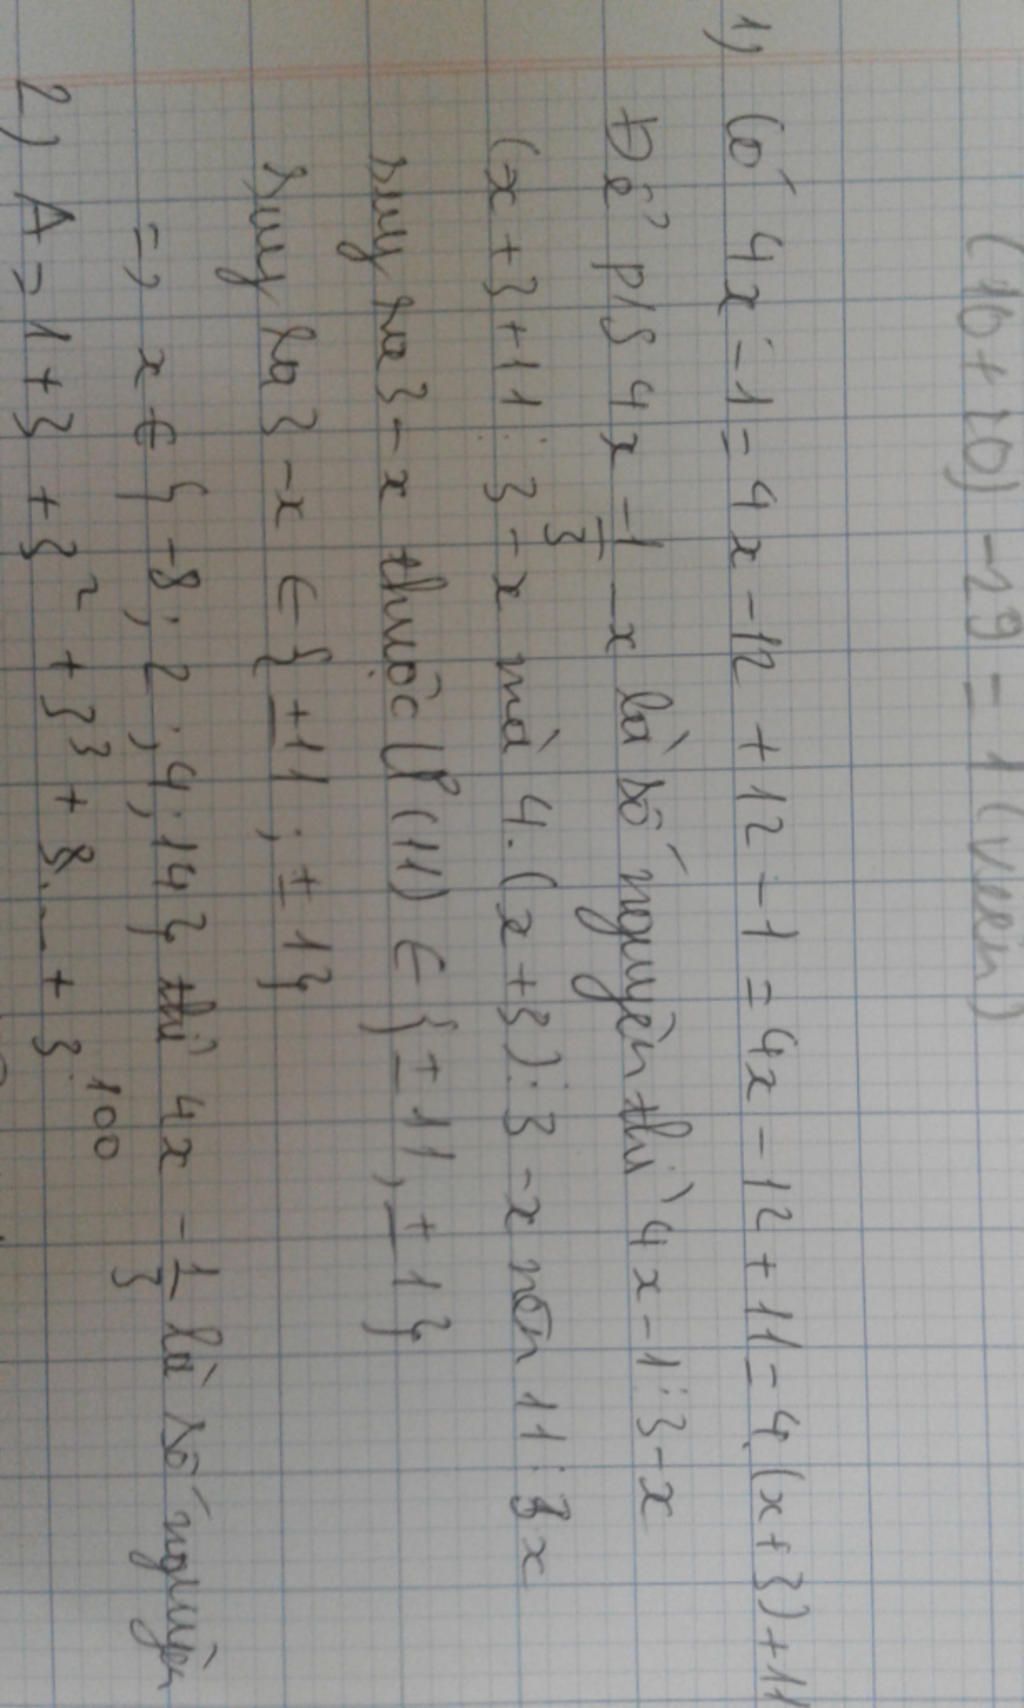 (10+20) - 29 = 1 (
1) Có 4x - 1 = 4x - 12 + 12 - 1 = 4x - 12 + 11 = 4(x+3)+11
Để p/s 4x - 1/3 - x là số nguyên thì 4x - 1 ⋮ 3 - x
(x + 3 + 11 ⋮ 3 - x mà 4.(x + 3) ⋮ 3 - x nên 11 ⋮ 3 x
suy ra 3 - x thuộc Ư(11) ∈ {± 11, ± 1}
suy ra 3 - x ∈ {± 11 ; ± 1}
=> x ∈ { -8; 2; 4; 14} thì 4x - 1/3 là số nguyên
2) A = 1 + 3 + 3² + 3³ + 3... + 3¹⁰⁰